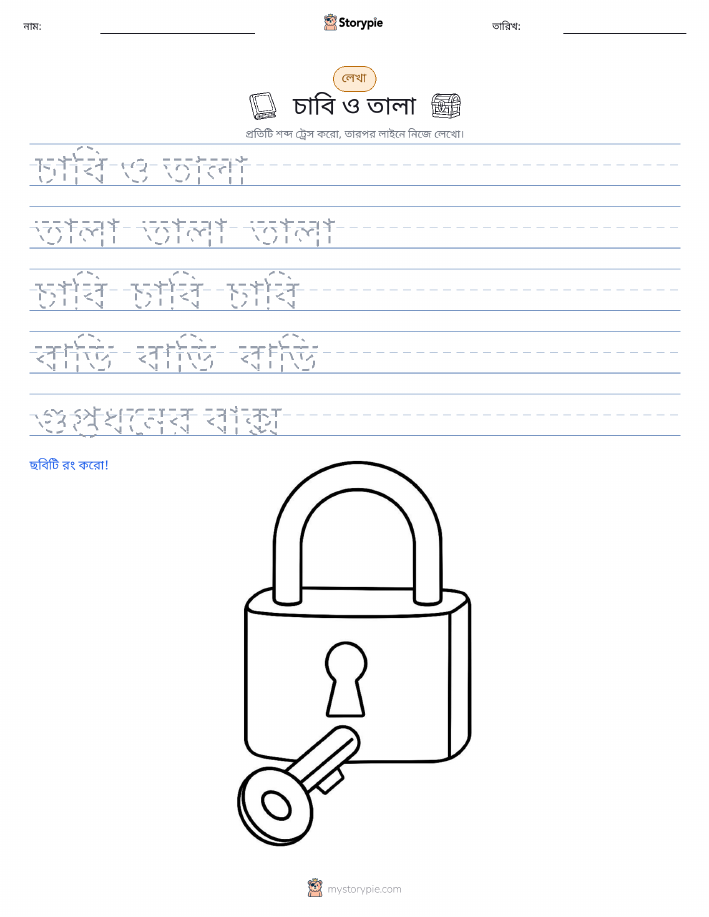 নাম:
Storypie
তারিখ:
লেখা
চাবি ও তালা
প্রতিটি শব্দ ট্রেস করো, তারপর লাইনে নিজে লেখো।
চাবি ও তালা
তালা তালা তালা
চাবি চাবি চাবি
বাতি বাতি বাতি
গুপ্তধনের বাক্স
ছবিটি রং করো!
mystorypie.com